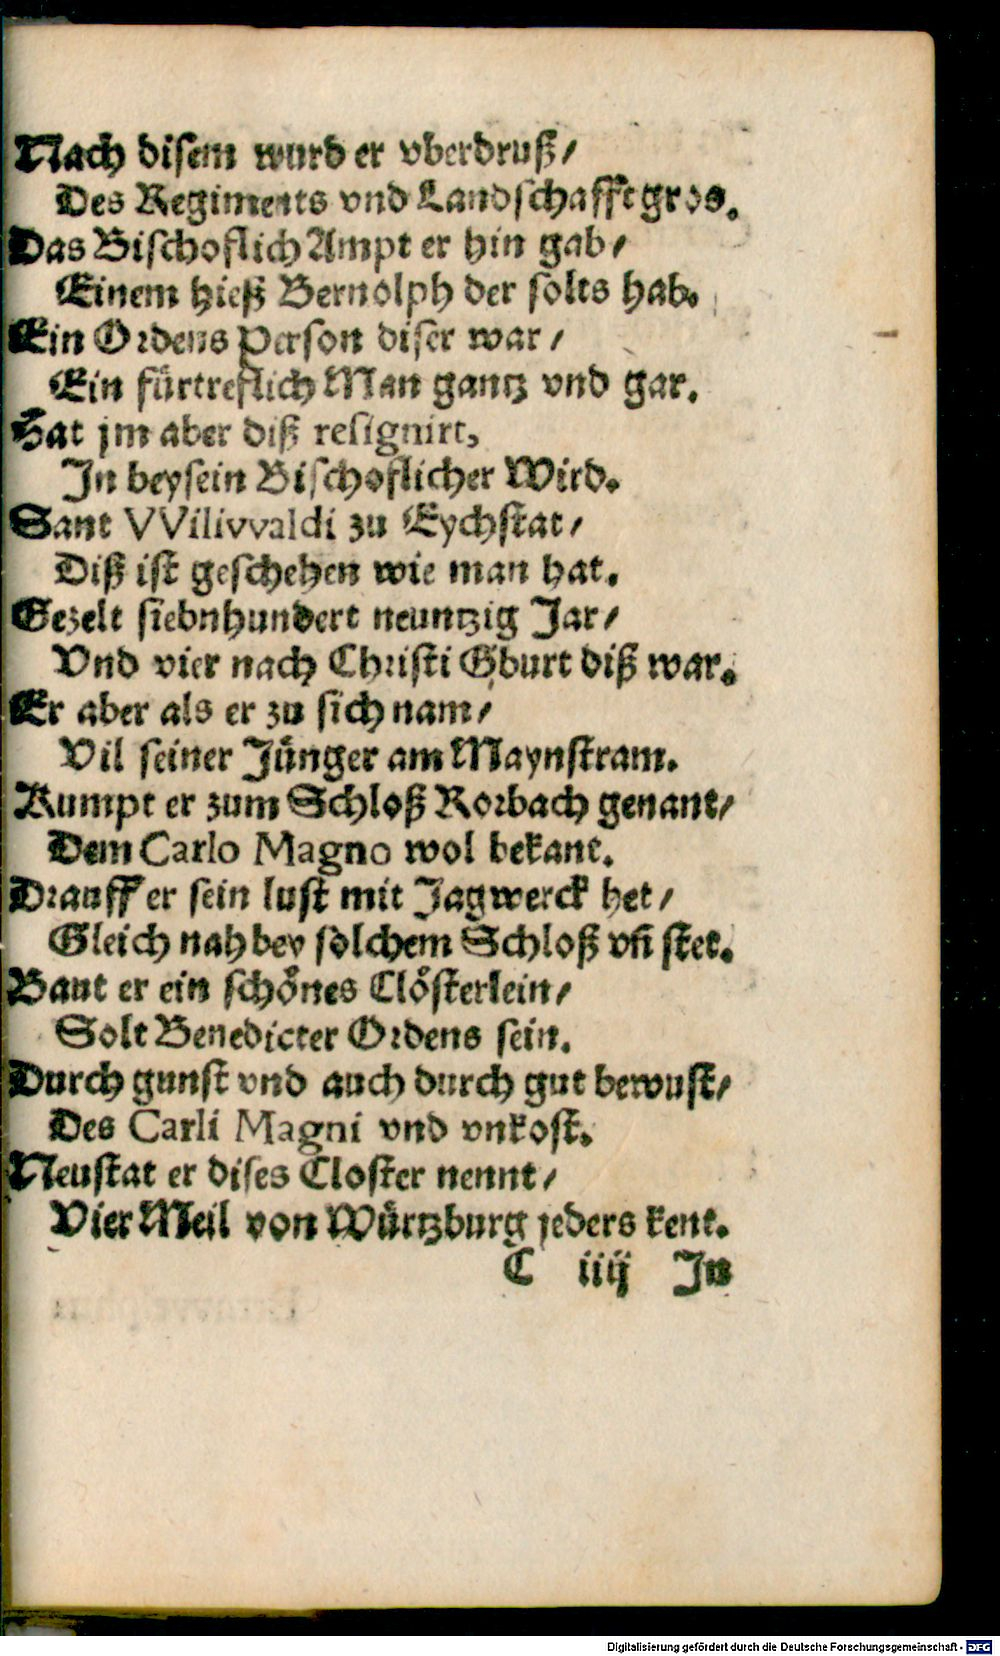 Nach disem wurd er vberdruß/
Des Regiments vnd Landschafft gros.
Das Bischoflich Ampt er hin gab/
Einem hieß Bernolph der solts hab.
Ein Ordens Person diser war/
Ein fürtreflich Man gantz vnd gar.
Hat jm aber diß resignirt,
In beysein Bischoflicher Wird.
Sant VVilivvaldi zu Eychstat/
Diß ist geschehen wie man hat.
Gezelt siebnhundert neuntzig Jar/
Vnd vier nach Christi Gburt diß war.
Er aber als er zu sich nam/
Vil seiner Jünger am Maynstram.
Kumpt er zum Schloß Rorbach genant/
Dem Carlo Magno wol bekant.
Drauff er sein lust mit Jagwerck het/
Gleich nah bey solchem Schloß vñ stet.
Baut er ein schönes Clösterlein/
Solt Benedicter Ordens sein.
Durch gunst vnd auch durch gut bewust/
Des Carli Magni vnd vnkost.
Neustat er dises Closter nennt/
Vier Meil von Würtzburg jeders kent.
C iiij In
Digitalisierung gefördert durch die Deutsche Forschungsgemeinschaft - DFG